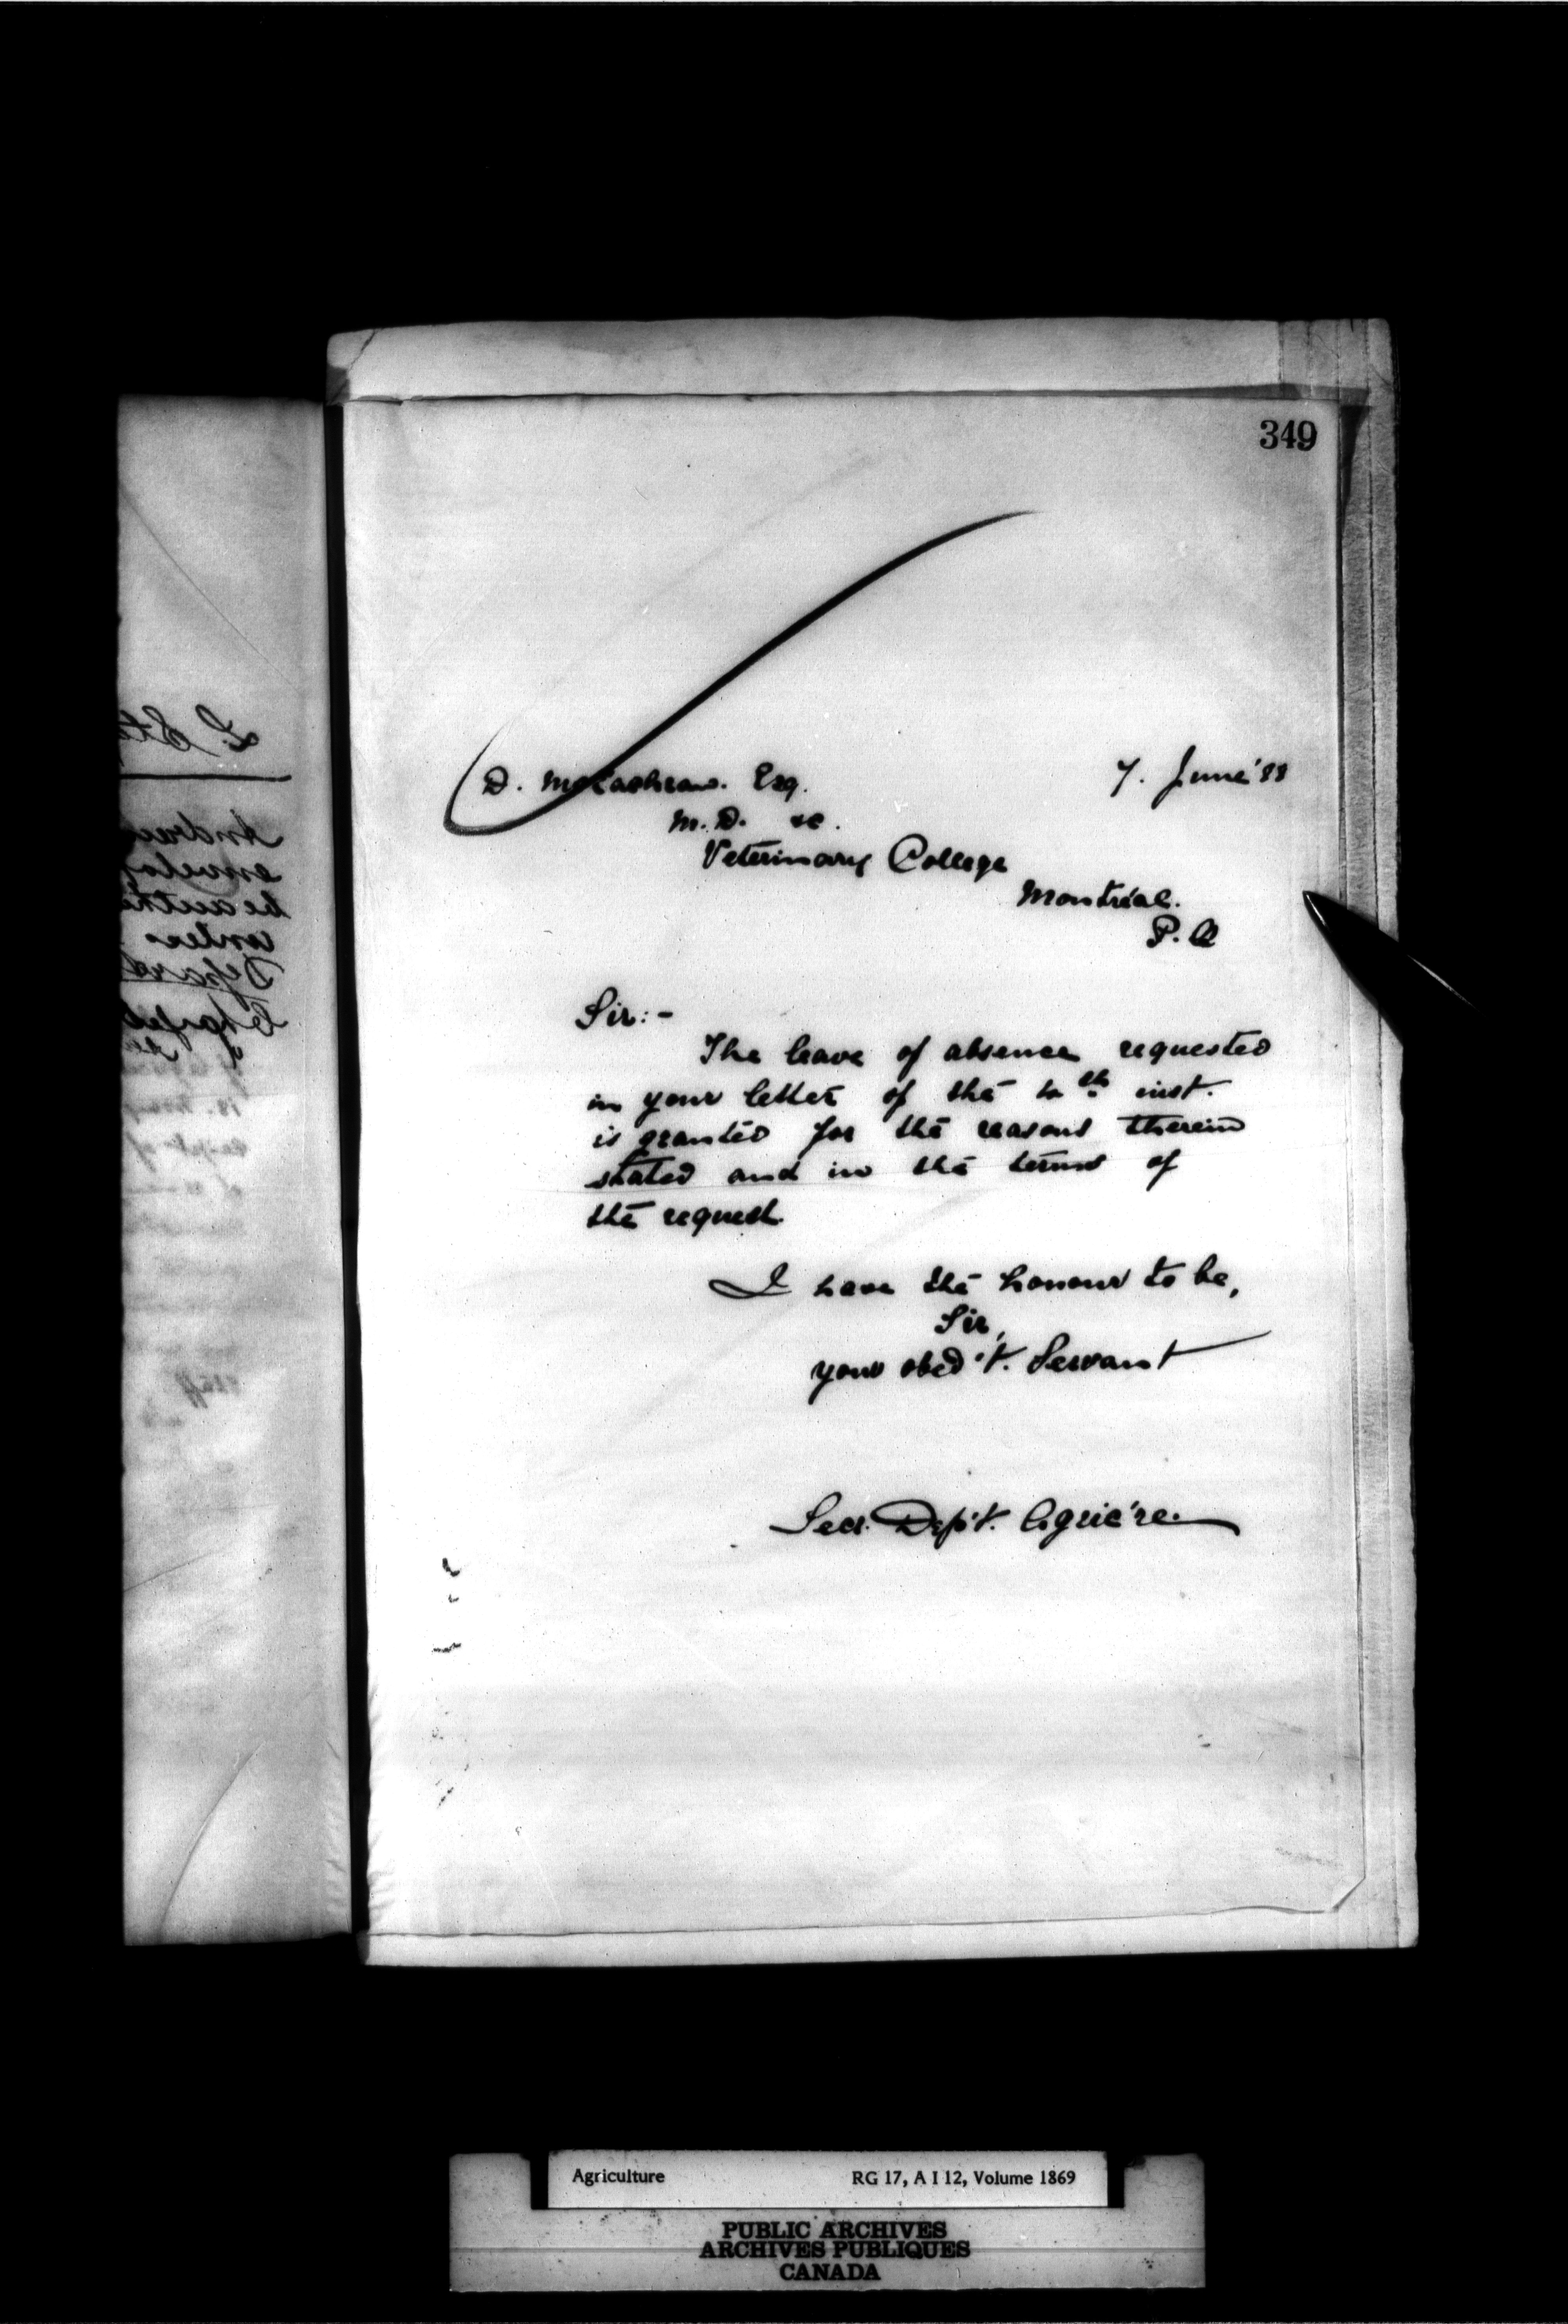 349
D. McEachran. Esq.
7. June '88
M.D. &c.
Veterinary College
Montréal.
P.Q
Sir:-
The leave of absence requested
in your letter of the th inst.
is granted for the reasons therein
stated and in the terms of
the request.
I have the honour to be,
Sir,
your obed't. Servant
Secy. Dep't. Agric're.
Agriculture
RG 17, A I 12, Volume 1869
PUBLIC ARCHIVES
ARCHIVES PUBLIQUES
CANADA